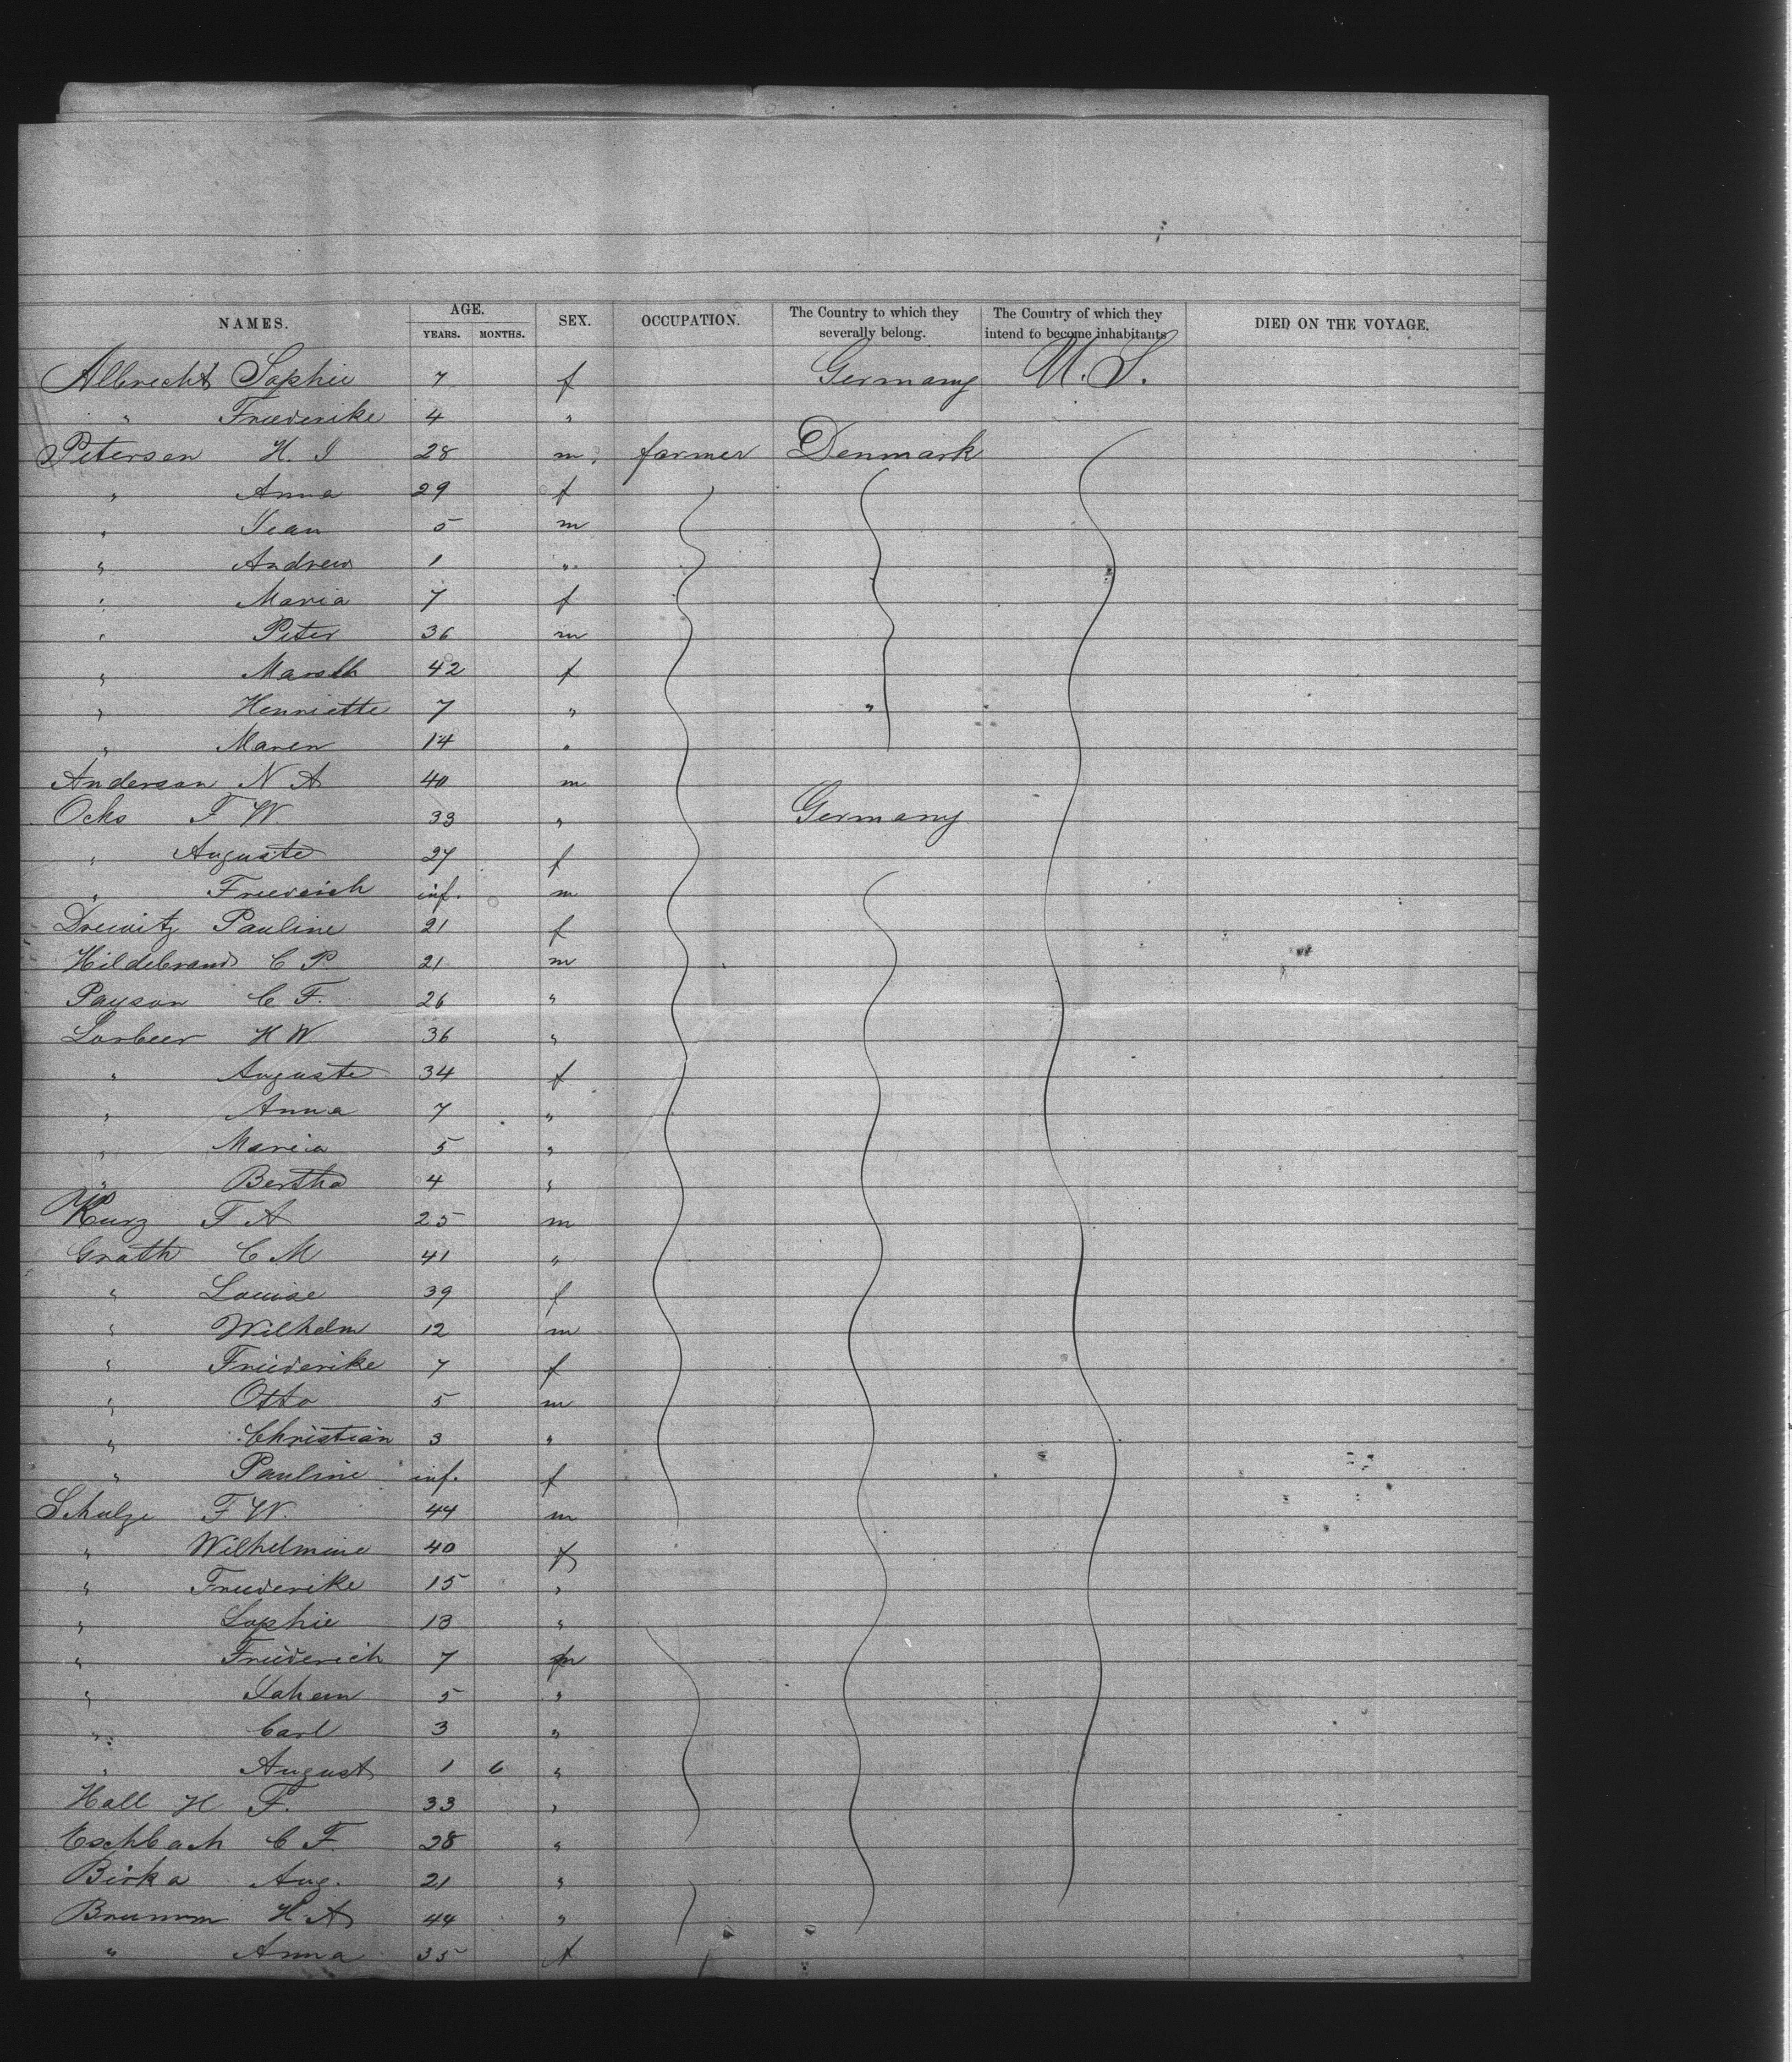 NAMES. AGE. YEARS. MONTHS. SEX. OCCUPATION. The Country to which they severally belong. The Country of which they intend to become inhabitants DIED ON THE VOYAGE.
Albrecht Sophie 7 f Germany U. S.
" Friederike 4 "
Petersen H. J 28 m. farmer Denmark
" Anna 29 f
" Jean 5 m
" Andrew 1 "
" Maria 7 f
" Peter 36 m
" 42 f
" Henriette 7 " "
" Maren 14 "
Anderson N A 40 m
Ocks F W. 33 " Germany
" Auguste 27 f
" Friedrich inf. m
Drewitz Pauline 21 f
Hildebrand C P. 21 m
Payson C F. 26 "
Lorbeer H W 36 "
" Auguste 34 f
" Anna 7 "
" Maria 5 "
" Bertha 4 "
Kurz F A 25 m
Grath C M 41 "
" Louise 39 f
" Wilhelm 12 m
" Friederike 7 f
" Otto 5 m
" Christian 3 "
" Pauline inf. f
Schulze F W. 44 m
" Wilhelmine 40 f
" Friederike 15 "
" Sophie 13 "
" Friederich 7 m
" 5 "
" Carl 3 "
" August 1 6 "
Hall H F. 33 "
Eschbach C F. 28 "
Birka Aug. 21 "
Brumm H A 44 "
" Anna 35 f